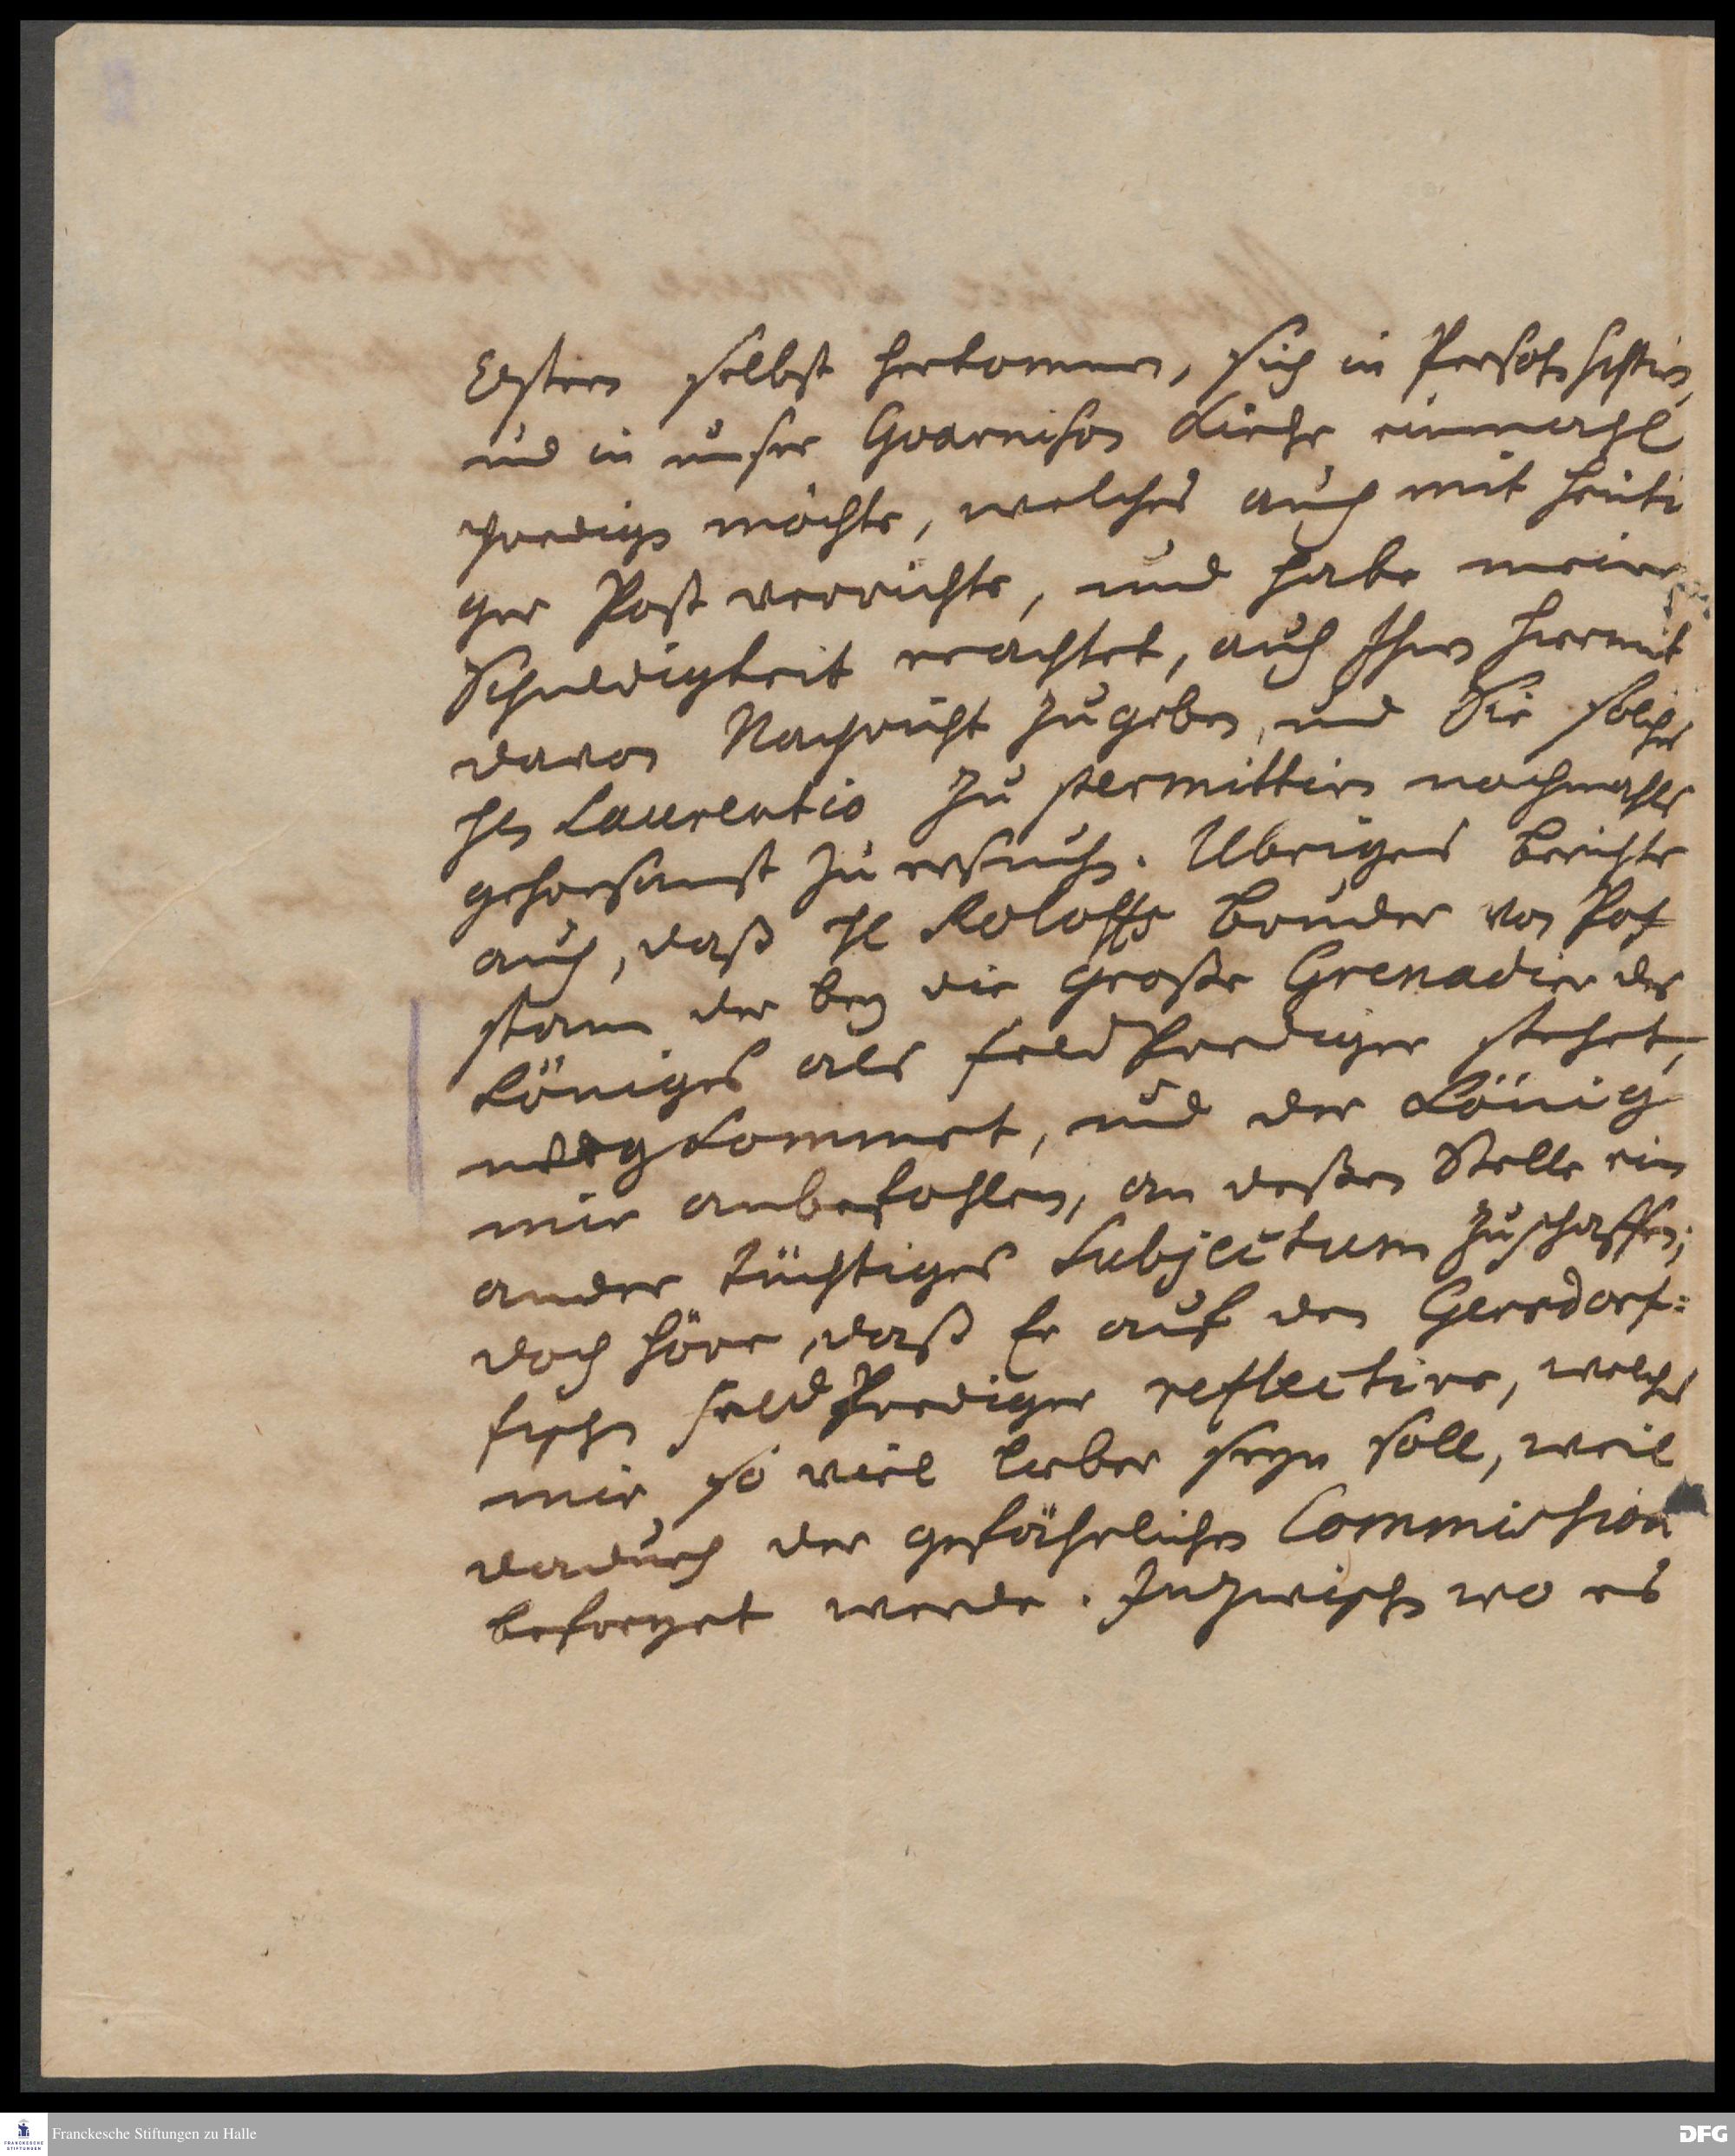 Ostern selbst herkommen, sich in Persohn sistiren,
und in unser Guarnison Kirche einmahl
predigen möchte, welches auch mit heuti
ger Post verrichte, und habe meine
Schuldigkeit erachtet, auch Ihnen hiermit
davon Nachricht zu geben, und Sie solches
H. Laurentio zu permittiren nochmahls
gehorsamst zu ersuchen. Ubrigens berichte
auch, daß H. Roloffs Bruder von Pots
dam der bey die große Grenadier des
Königes als FeldPrediger stehet,
weg kommet, und der König
mir anbefohlen, an deßen Stelle ein
ander tüchtiges Subjectum zu schaffen;
doch höre, daß Er auf den Gersdorf=
fischen FeldPrediger reflectire, welches
mir so viel lieber seyn soll, weil
dadurch der gefährlichen Commission
befreyet werde. Inzwischen wo es
Franckesche Stiftungen zu Halle
FRANCKESCHE
STIFTUNGEN
DFG